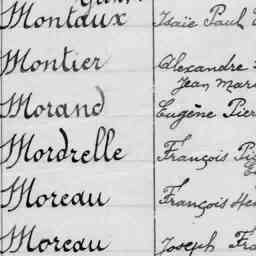 Montaux Isaïe Paul
Montier Alexandre
Jean Mari
Morand Eugène Pier
Mordrelle François
Moreau François
Moreau Joseph Fra